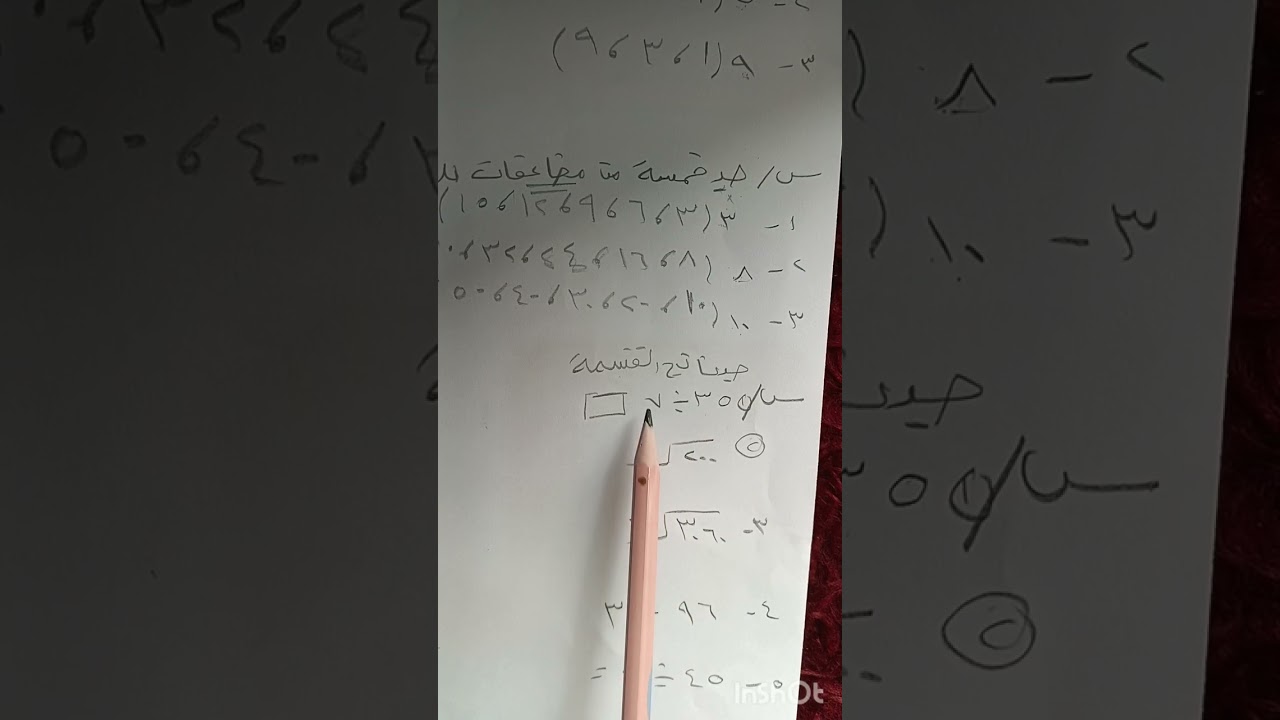 ٣- ٩(١،٣،٩)
س/ جد خمسة من مضاعفات
١- ٣(٣،٦،٩،١٢،١٥)
٢- ٨(٨،١٦،٢٤،٣٢
٣- ١٠(١٠،٢٠،٣٠،٤٠،٥٠
جد ناتج القسمة
س/① ٣٥÷٧ □
② √٢٠٠
٣- √٣٠٦٠
٤- ٩٦ ٣
٥- ٤٥ ÷ =
InShOt